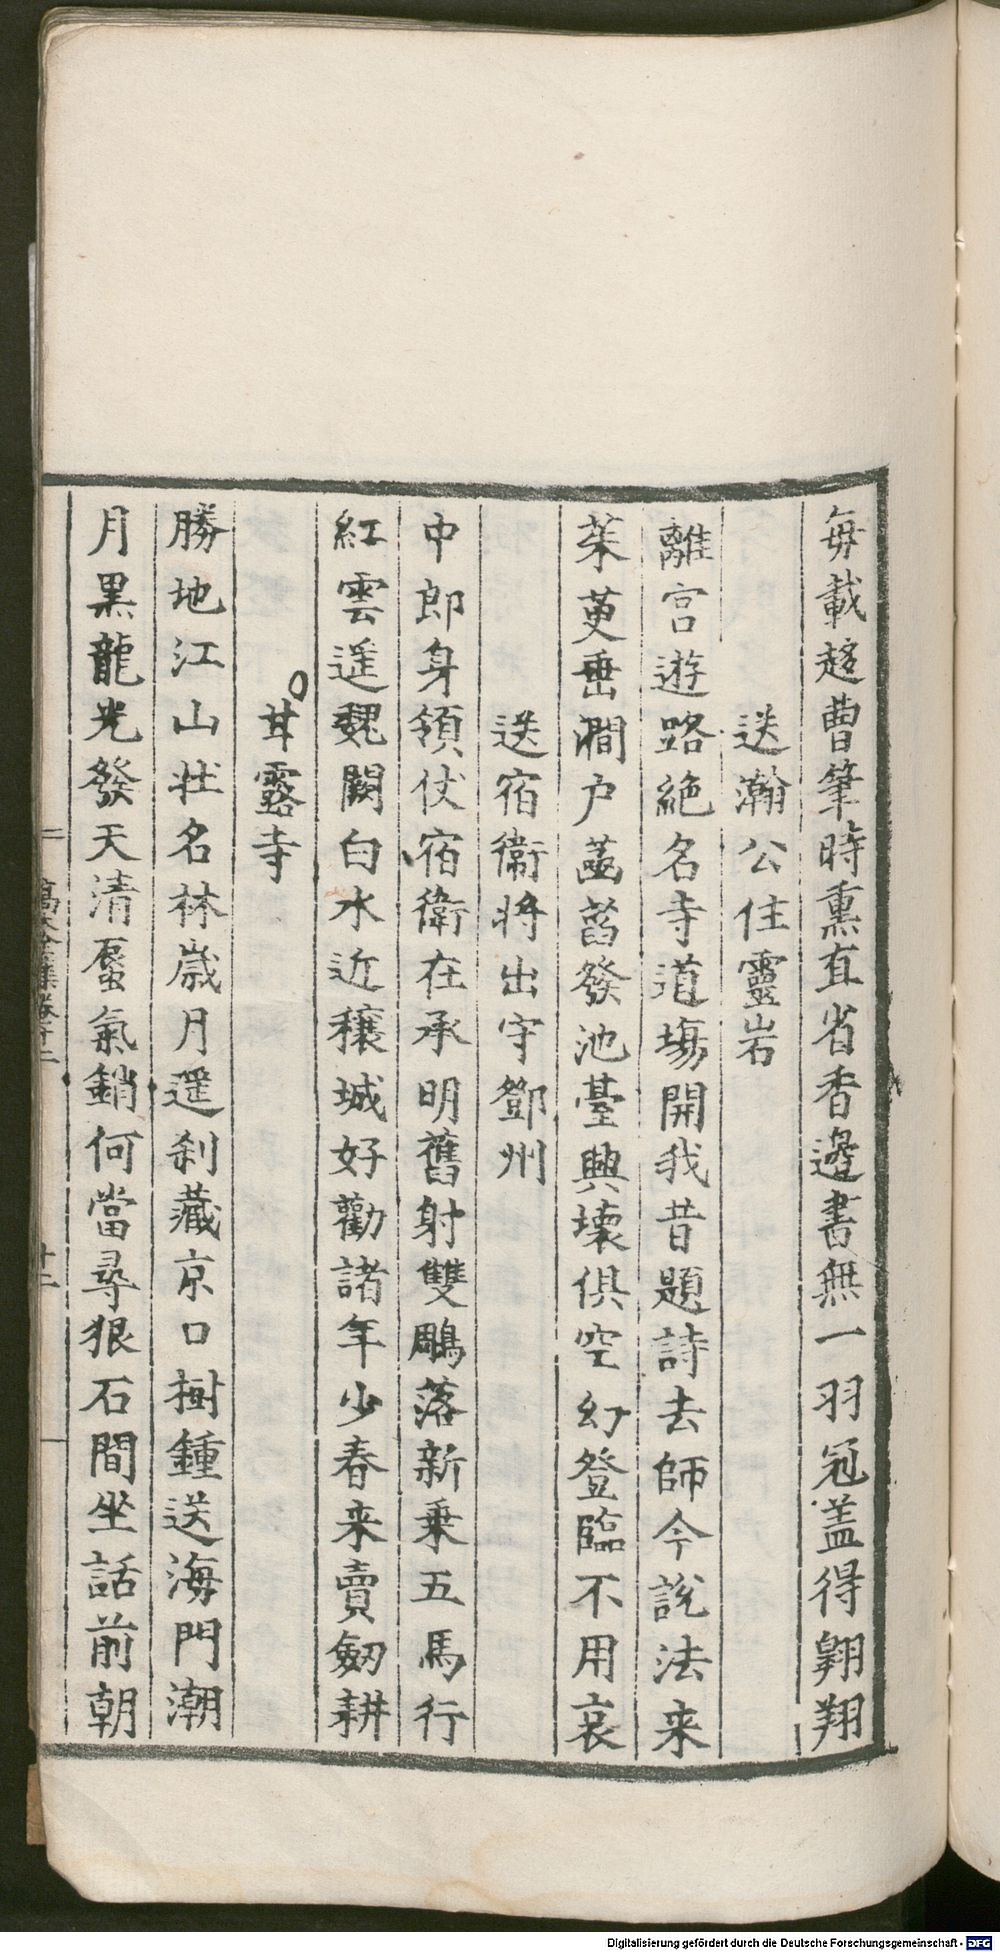 每載趍曹筆時熏直省香邊書無一羽冠盖得翺翔
送瀚公住靈岩
離宮遊路絶名寺道塲開我昔題詩去師今說法来
茱萸垂澗户菡萏發池臺興壞俱空幻登臨不用哀
送宿衛將出守鄧州
中郎身領仗宿衛在承明舊射雙鵰落新乗五馬行
紅雲遥魏闕白水近穰城好勸諸年少春来賣劒耕
甘露寺
勝地江山壮名林嵗月遥刹藏京口樹鍾送海門潮
月黒龍光發天清蜃氣銷何當尋狠石間坐話前朝
高太全集卷十二
十二
Digitalisierung gefördert durch die Deutsche Forschungsgemeinschaft - DFG